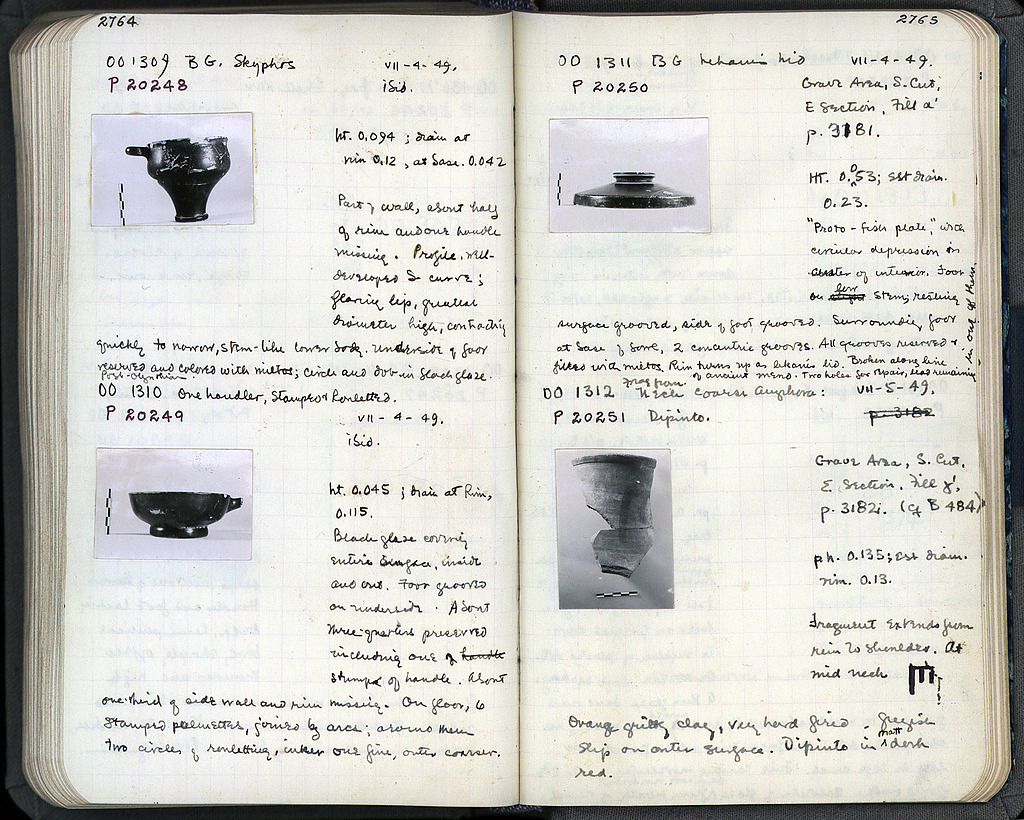 2764
OO 1309 B G. Skyphos VII-4-49.
P 20248 ibid.
ht. 0.094; diam at
rim 0.12, at base. 0.042
Part of wall, about half
of rim and one handle
missing. Profile, well-
developed S curve;
flaring lip, greatest
diameter high, contracting
quickly to narrow, stem-like lower body. Underside of foot
reserved and colored with miltos; circle and dot in black glaze.
OO 1310 One handler, Stamped & Rouletted.
P 20249 VII-4-49.
ibid.
ht. 0.045; diam at Rim,
0.115.
Black glaze covering
entire surface, inside
and out. Foot grooved
on underside. About
three-quarters preserved
including one of handle
stumps of handle. About
one-third of side wall and rim missing. On floor, 6
stamped palmettes, joined by arcs; around them
two circles of rouletting, inner one fine, outer coarser.
2765
OO 1311 B G Lekanis Lid VII-4-49.
P 20250 Grave Area, S. Cut,
E Section, Fill α'
p. 3181.
HT. 0.053; est diam.
0.23.
"Proto-fish plate," with
circular depression in
center of interior. Foot
on slight low stem; resting
surface grooved, side of foot grooved. Surrounding foot
at base of bowl, 2 concentric grooves. All grooves reserved &
filled with miltos. Rim turns up as lekanis lid. Broken along line
of ancient mend. Two holes for repair, lead remaining
in one of them.
OO 1312 Frag from Neck Coarse Amphora: VII-5-49.
P 20251 Dipinto. p. 3182
Grave Area, S. Cut,
E. Section, Fill γ',
p. 3182. (cf B 484)
ph. 0.135; est diam.
rim. 0.13.
Fragment extends from
rim to shoulder. At
mid neck
Orange gritty clay, very hard fired. Greyish
slip on outer surface. Dipinto in matt dark
red.